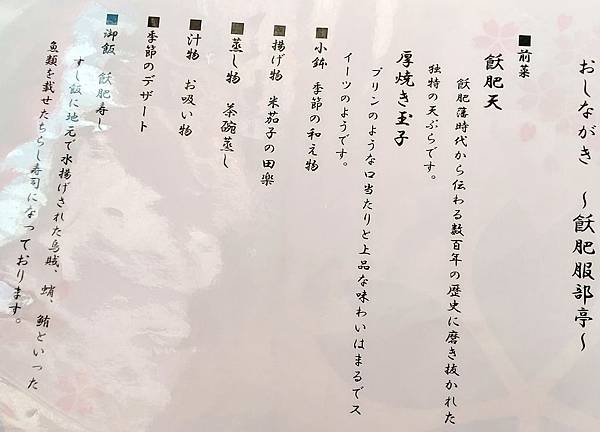 おしながき　～飫肥服部亭～
■前菜
飫肥天
飫肥藩時代から伝わる数百年の歴史に磨き抜かれた
独特の天ぷらです。
厚焼き玉子
プリンのような口当たりと上品な味わいはまるでス
イーツのようです。
■小鉢　季節の和え物
■揚げ物　米茄子の田楽
■蒸し物　茶碗蒸し
■汁物　お吸い物
■季節のデザート
■御飯　飫肥寿し
すし飯に地元で水揚げされた烏賊、蛸、鮪といった
魚類を載せたちらし寿司になっております。